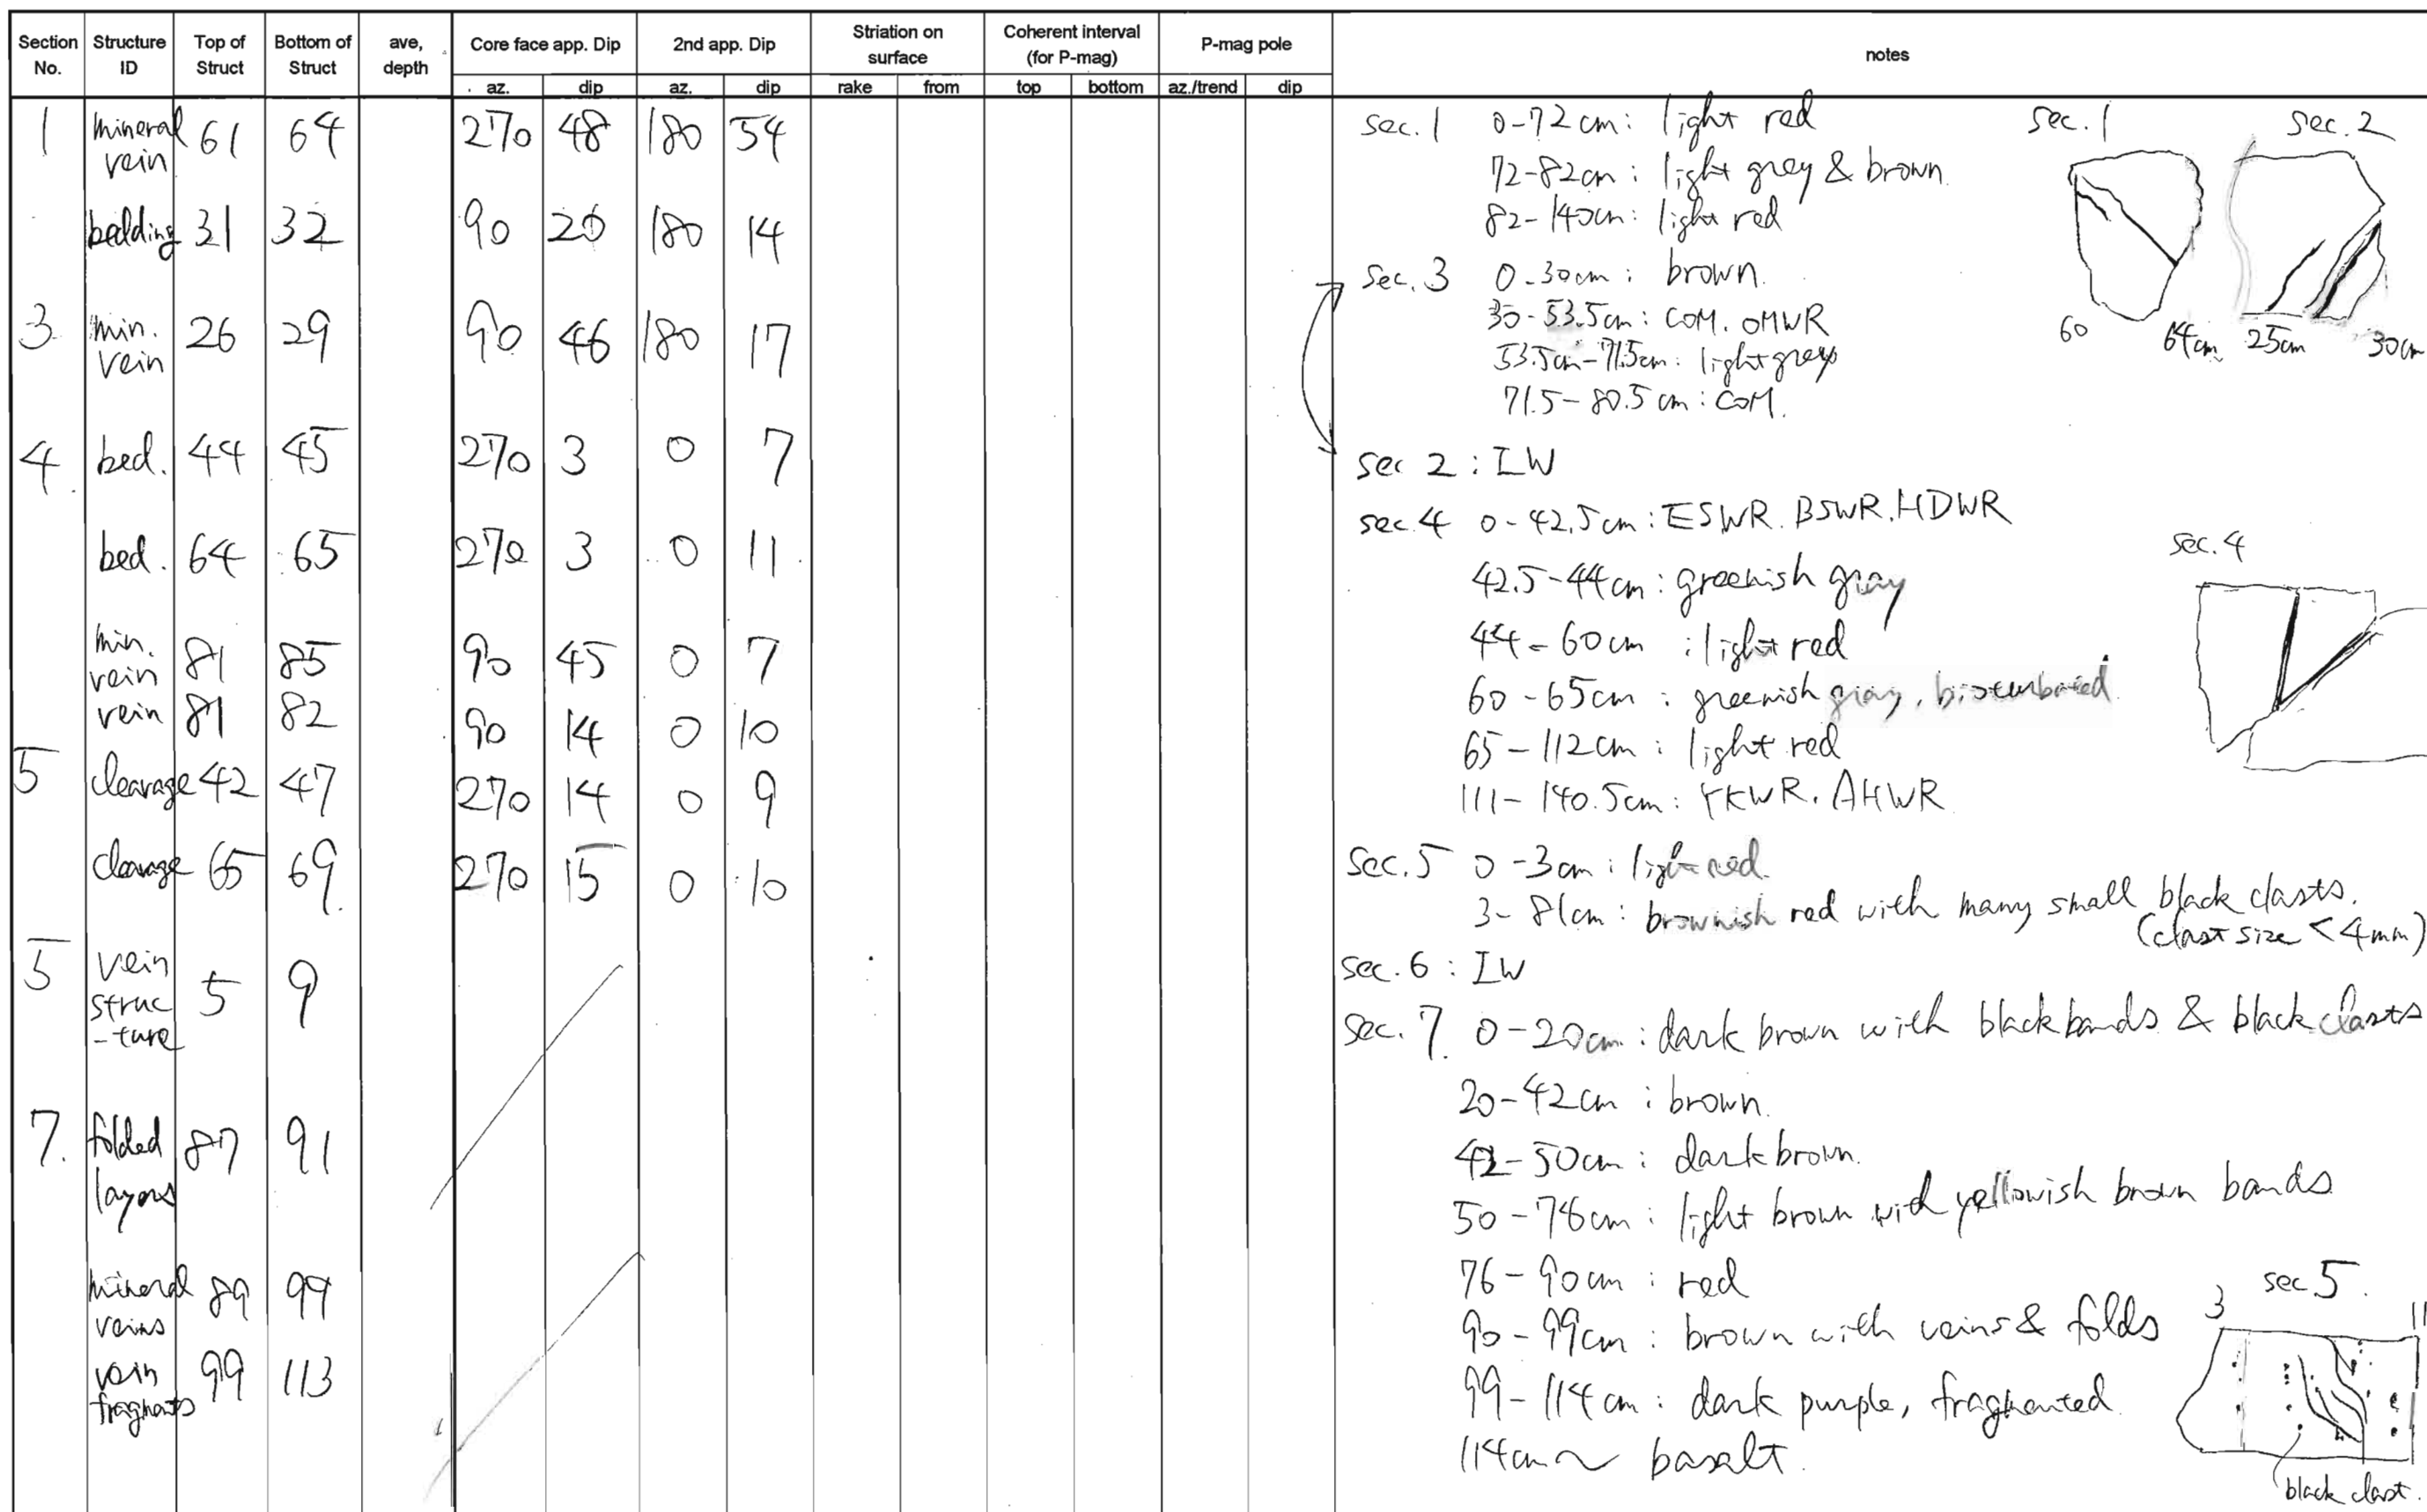 Section No. Structure ID Top of Struct Bottom of Struct ave, depth Core face app. Dip 2nd app. Dip Striation on surface Coherent interval (for P-mag) P-mag pole notes
az. dip az. dip rake from top bottom az./trend dip
1 mineral vein 61 64 270 48 180 54
bedding 31 32 90 20 180 14
3 min. vein 26 29 90 46 180 17
4 bed. 44 45 270 3 0 7
bed. 64 65 270 3 0 11
min. vein 81 85 90 45 0 7
vein 81 82 90 14 0 10
5 cleavage 42 47 270 14 0 9
cleavage 65 69 270 15 0 10
5 vein struc-ture 5 9
7. folded layers 87 91
mineral veins 89 99
vein fragments 99 113
sec. 1 0-72cm: light red
72-82cm: light grey & brown.
82-140cm: light red
sec. 3 0-30cm: brown.
30-53.5cm: COM. OMWR
53.5cm-71.5cm: light grey
71.5-80.5cm: COM.
sec 2: IW
sec. 4 0-42.5cm: ESWR. BSWR. HDWR
42.5-44cm: greenish gray
44-60cm: light red
60-65cm: greenish gray, bioturbated
65-112cm: light red
111-140.5cm: YKWR. AHWR
sec. 5 0-3cm: light red.
3-81cm: brownish red with many small black clasts.
(clast size < 4mm)
sec. 6: IW
sec. 7. 0-20cm: dark brown with black bands & black clasts
20-42cm: brown.
42-50cm: dark brown.
50-76cm: light brown with yellowish brown bands
76-90cm: red
90-99cm: brown with veins & folds
99-114cm: dark purple, fragmented
114cm~ basalt.
sec. 1
60 64cm
sec. 2
25cm 30cm
sec. 4
sec. 5.
3 11
black clast.